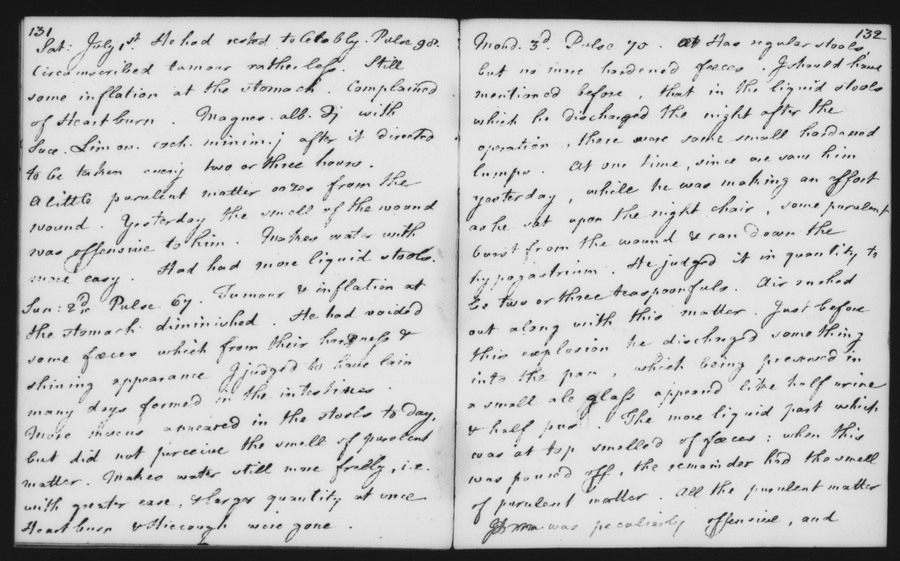 131
Sat. July 1st He had rested tolelably. Pulse 98.
Circumscribed tumour rather less. Still
some inflation at the stomach. Complained
of Heartburn. Magnes. alb. ʒj with
Succ. Limon. coch. minim. j after it directed
to be taken every two or three hours.
A little purulent matter oozes from the
wound. Yesterday the smell of the wound
was offensive to him. Makes water with
more easy. Had had more liquid stools.
Sun. 2d Pulse 67. Tumour & inflation at
the stomach diminished. He had voided
some fæces which from their hardness &
shining appearance I judged to have lain
many days formed in the intestines.
More mucus appeared in the stools to day,
but did not perceive the smell of purulent
matter. Makes water still more freely, i.e.
with greater ease, & larger quantity at once
Heartburn & Hiccough were gone.
132
Mond. 3d Pulse 70. Has regular stools,
but no more hardened fæces. I should have
mentioned before, that in the liquid stools
which he discharged the night after the
operation, there were some small hardened
lumps. At one time, since we saw him
yesterday, while he was making an effort
as he sat upon the night chair, some purulent
burst from the wound & ran down the
hypogastrium. He judged it in quantity to
be two or three teaspoonfuls. Air rushed
out along with this matter. Just before
this explosion he discharged something
into the pan, which being preserved in
a small ale glass appeard like half urine
& half pus. The more liquid part which
was at top smelled of fæces; when this
was poured off, the remainder had the smell
of purulent matter. All the purulent matter
was peculiarly offensive, and